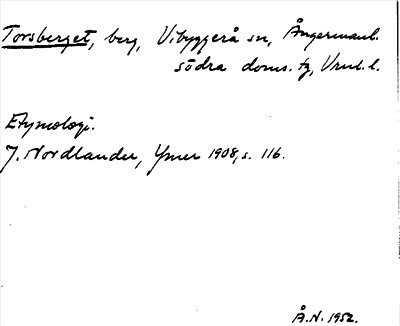 Torsberget, berg, Vibyggerå sn, Ångermanl.
södra doms. tg, Vrnl. l.
Etymologi.
J. Nordlander, Ymer 1908, s. 116.
Å.N. 1952.